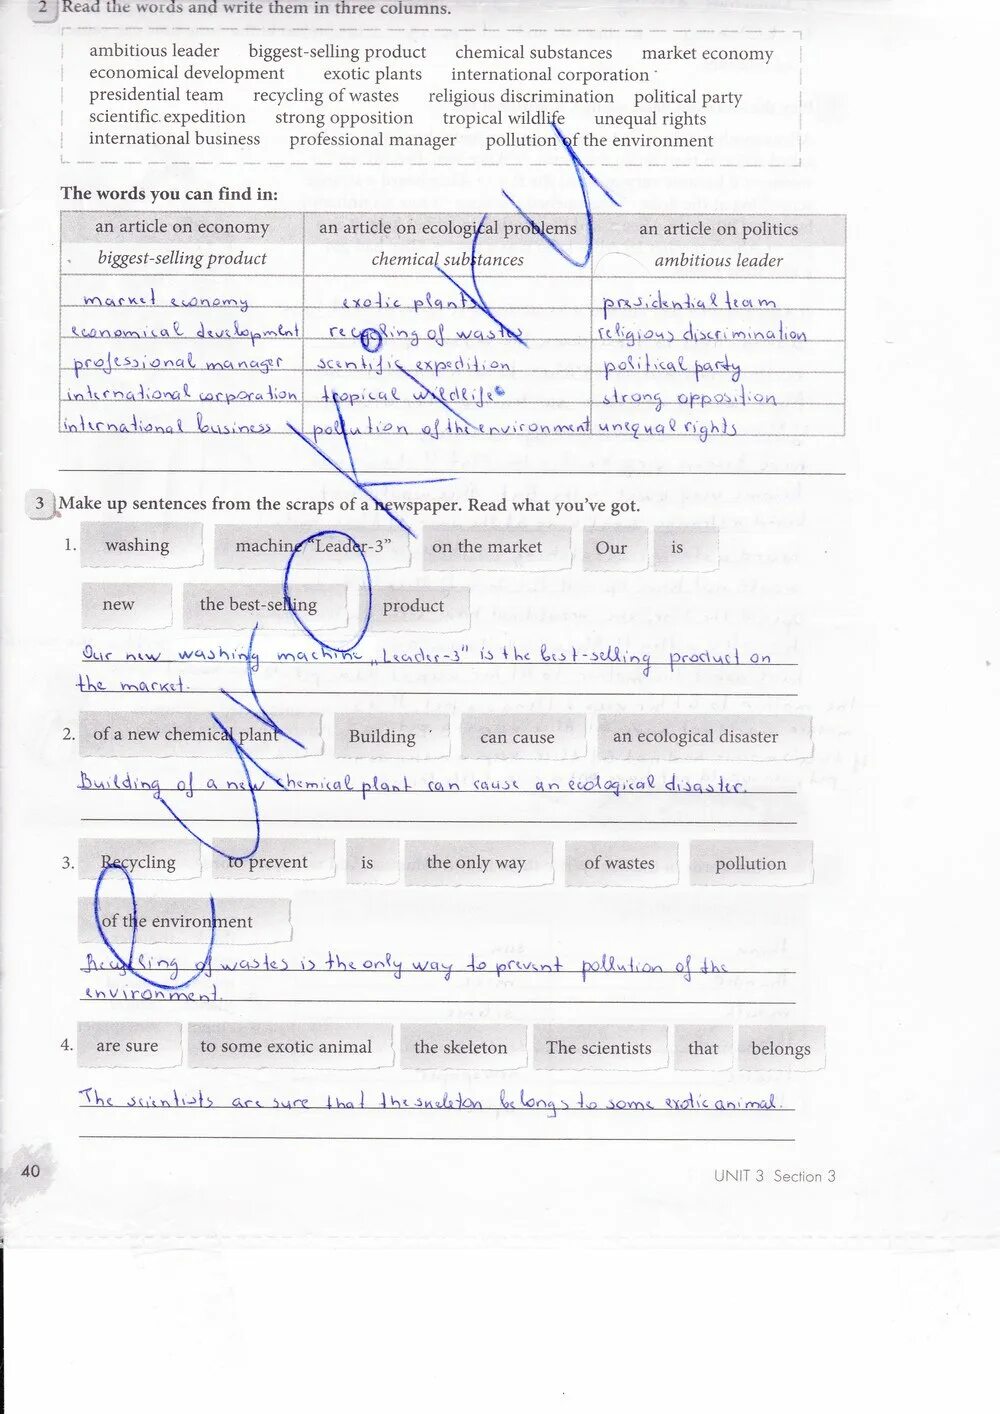 2 Read the words and write them in three columns.
ambitious leader biggest-selling product chemical substances market economy
economical development exotic plants international corporation
presidential team recycling of wastes religious discrimination political party
scientific expedition strong opposition tropical wildlife unequal rights
international business professional manager pollution of the environment
The words you can find in:
an article on economy an article on ecological problems an article on politics
biggest-selling product chemical substances ambitious leader
market economy exotic plants presidential team
economical development recycling of wastes religious discrimination
professional manager scentific expedition political party
international corporation tropical wildlife strong opposition
international business pollution of the environment unequal rights
3 Make up sentences from the scraps of a newspaper. Read what you've got.
1. washing machine "Leader-3" on the market Our is
new the best-selling product
Our new washing machine „Leader-3" is the best-selling product on
the market.
2. of a new chemical plant Building can cause an ecological disaster
Building of a new chemical plant can cause an ecological disaster.
3. Recycling to prevent is the only way of wastes pollution
of the environment
Recycling of wastes is the only way to prevent pollution of the
environment.
4. are sure to some exotic animal the skeleton The scientists that belongs
The scientists are sure that the skeleton belongs to some exotic animal.
40
UNIT 3 Section 3